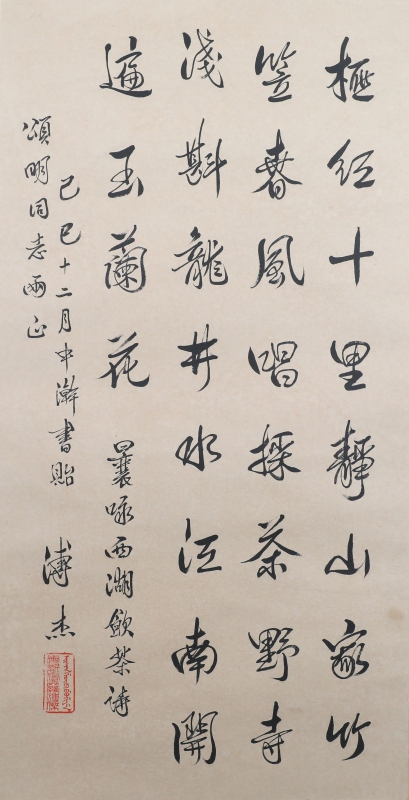 榧红十里靜山家竹
笠春風唱採茶野寺
淺斟龍井水江南開
遍玉蘭花 曩咏西湖飲茶诗
己巳十二月中澣書貽
頌明同志両正
溥杰